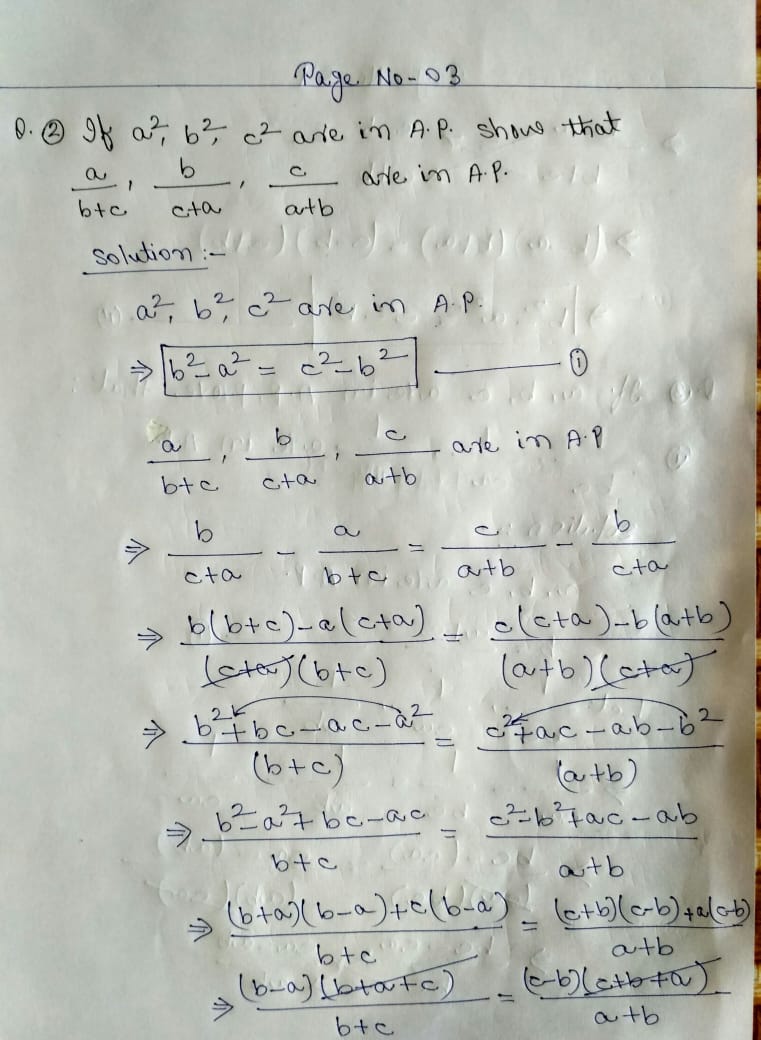 Page No-03
Q. ② If a², b², c² are in A.P. show that
a/(b+c), b/(c+a), c/(a+b) are in A.P.
Solution :-
a², b², c² are in A.P.
⇒ b²-a² = c²-b² ——— ①
a/(b+c), b/(c+a), c/(a+b) are in A.P
⇒ b/(c+a) - a/(b+c) = c/(a+b) - b/(c+a)
⇒ (b(b+c)-a(c+a))/((c+a)(b+c)) = (c(c+a)-b(a+b))/((a+b)(c+a))
⇒ (b²+bc-ac-a²)/(b+c) = (c²+ac-ab-b²)/(a+b)
⇒ (b²-a²+bc-ac)/(b+c) = (c²-b²+ac-ab)/(a+b)
⇒ ((b+a)(b-a)+c(b-a))/(b+c) = ((c+b)(c-b)+a(c-b))/(a+b)
⇒ ((b-a)(b+a+c))/(b+c) = ((c-b)(c+b+a))/(a+b)